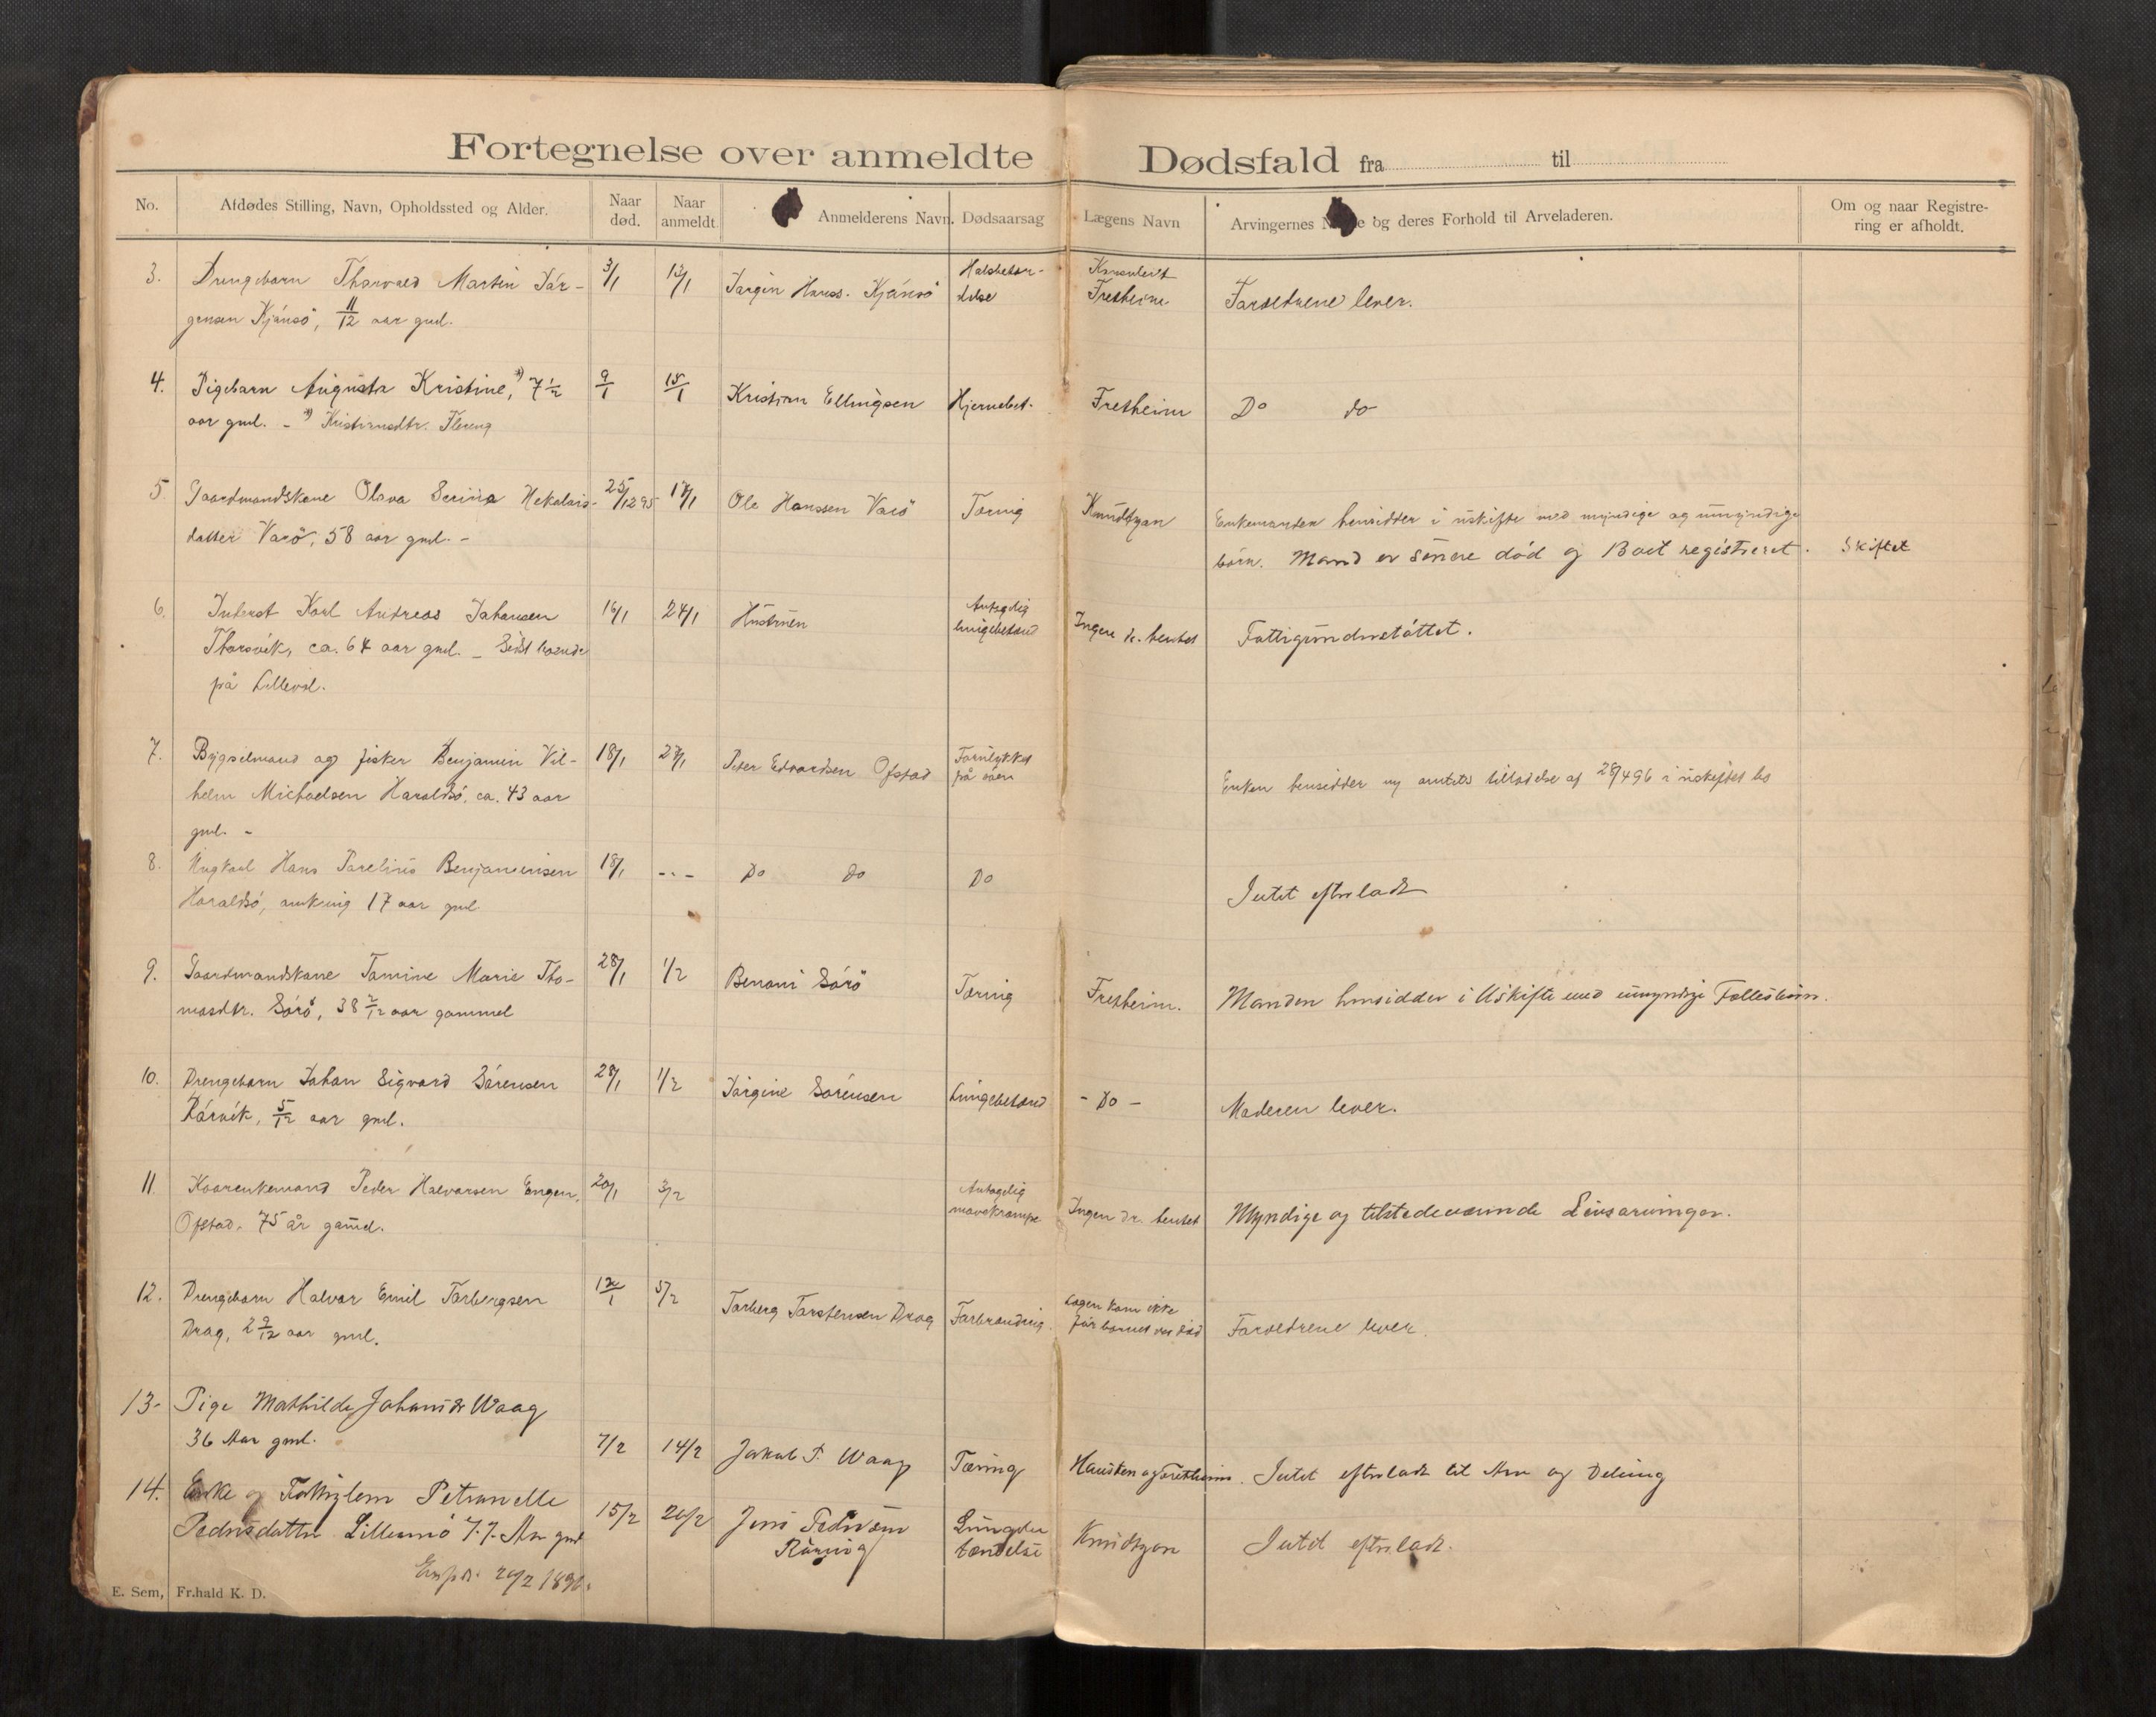 Fortegnelse over anmeldte Dødsfald fra til
No. Afdødes Stilling, Navn, Opholdssted og Alder. Naar død. Naar anmeldt. Anmelderens Navn. Dødsaarsag Lægens Navn Arvingernes og deres Forhold til Arveladeren. Om og naar Registrering er afholdt.
3. Drengebarn Thorvald Martin Jör-
gensen Kjönsö, 11/12 aar gml.
3/1 13/1 Jörgen Hanss. Kjönsö
Halsbetæn-
delse
Fretheim
Forældrene lever.
4. Pigebarn Augusta Kristine, *) 7 1/2
aar gml. - *) Kristiansdtr. Flereng
9/1 15/1 Kristian Ellingsen Hjernebet. Fretheim Do do
5. Gaardmandskone Olava Serina
datter Varö, 58 aar gml. -
25/12 95 17/1 Ole Hanssen Varö Tæring Knudtzon
Enkemanden hensidder i uskifte med myndige og umyndige
börn. Mand er senere död og Boet registreret. Skiftet
6. Inderst Karl Andreas Johansen
Thorsvik, ca. 64 aar gml. - Sidst boende
på Lilleval.
16/1 24/1 Hustruen
Antagelig
lungebetænd
Ingen dr. hentet Fattigunderstöttet.
7. Bygselmand og fisker Benjamin Vil-
helm Michaelsen Haraldsö, ca. 43 aar
gml. -
18/1 27/1 Peter Edvardsen Ofstad
Forulykket
på söen
Enken hensidder ng amtets tilladelse af 28/4 96 i uskiftet bo
8. Ungkarl Hans Parelius Benjaminsen
Haraldsö, omkring 17 aar gml
18/1 - " - Do do Do Intet efterladt
9. Gaardmandskone Tomine Marie Tho-
masdtr. Sörö, 38 2/12 aar gammel
28/1 1/2 Benoni Sörö Tæring Fretheim. Manden hensidder i Uskifte med umyndige Fællesbörn.
10. Drengebarn Johan Sigvard Sörensen
Körvik, 5/12 aar gml.
28/1 1/2 Jörgine Sörensen Lungebetænd - Do - Moderen lever.
11. Kaarenkemand Peder Halvorsen Engen,
Ofstad. 75 år gammel.
20/1 3/2
Antagelig
mavekrampe
Ingen dr. hentet Myndige og tilstedeværende Livsarvinger.
12. Drengebarn Halvor Emil Torbergsen
Drag, 2 9/12 aar gml.
12/1 5/2 Torberg Torstensen Drag Forbrænding.
Lægen kom ikke
för barnet var död
Forældrene lever.
13. Pige Mathilde Johansdr Waag
36 Aar gml.
7/2 14/2 Jakob P. Waag Tæring Hansteen og Fretheim. Intet efterladt til Arv og Deling
14. Enke og Fattiglem Petronelle
Pedersdatter Lillemo 77 Aar gml
15/2 26/2 Jens Pedersen
Lungebe
tændelse
Knudtzon Intet efterladt.
Exped. 26/2 1896.
E. Sem, Fr.hald K. D.